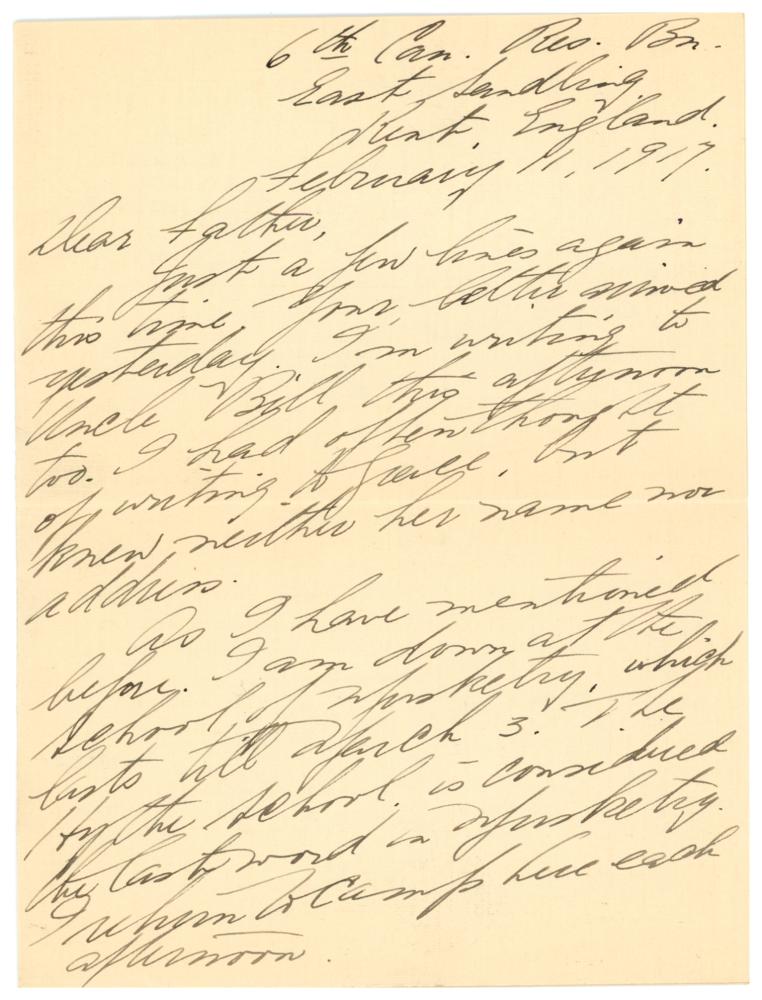 6th Can. Res. Bn.
East Sandling
Kent England.
February 11, 1917.
Dear Father,
Just a few lines again
this time. Your letter arrived
yesterday. I'm writing to
Uncle Bill this afternoon
too. I had often thought
of writing to Grace, but
knew neither her name nor
address.
As I have mentioned
before. I am down at the
School of Musketry, which
lasts till March 3. The
Hythe School is considered
the last word in Musketry.
I return to camp here each
afternoon.